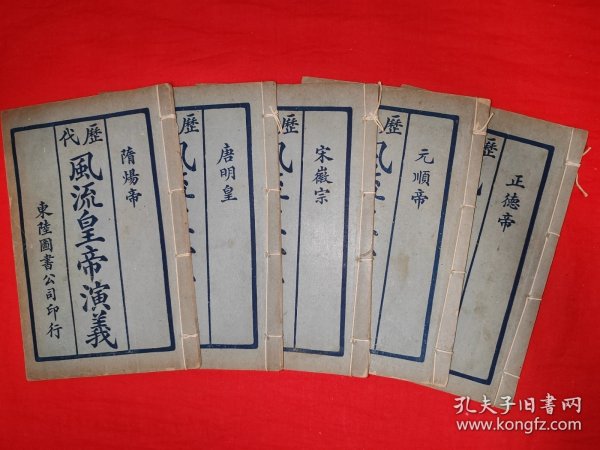 歷代
隋煬帝
風流皇帝演義
東陸圖書公司印行
歷
唐明皇
歷
宋徽宗
歷
元順帝
歷
正德帝
孔夫子旧书网
www.kongfz.com